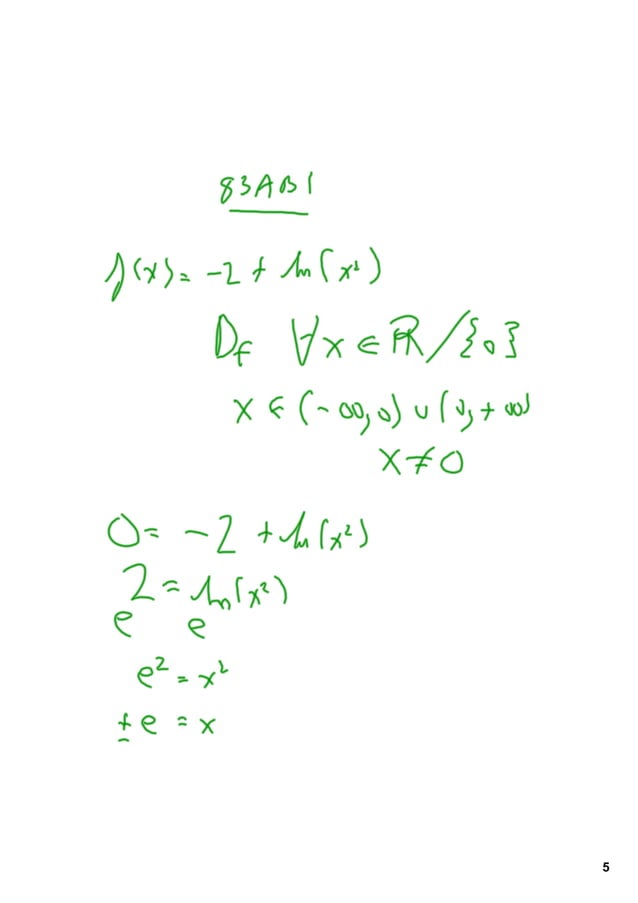 83AB1
f(x) = -2 + ln(x²)
Df ∀x ∈ ℝ/{0}
x ∈ (-∞,0) ∪ (0,+∞)
x ≠ 0
0 = -2 + ln(x²)
2 = ln(x²)
e e
e² = x²
± e = x
5